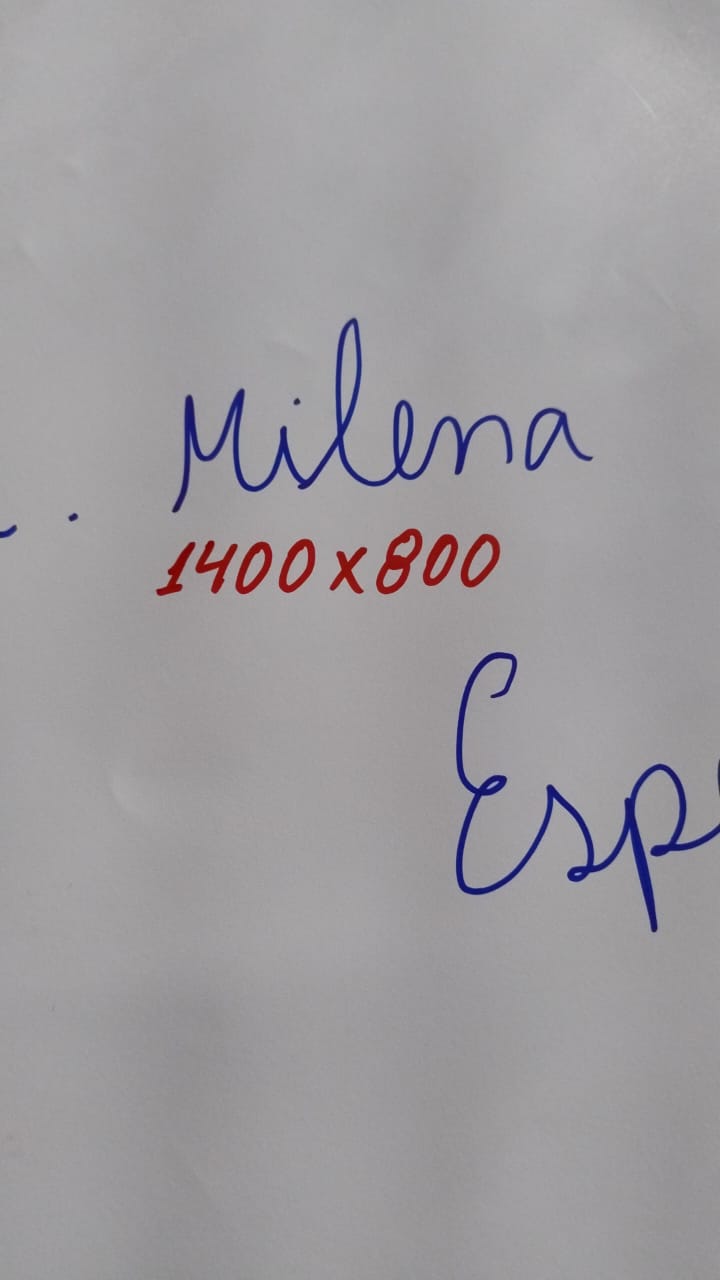 Milena
1400x800